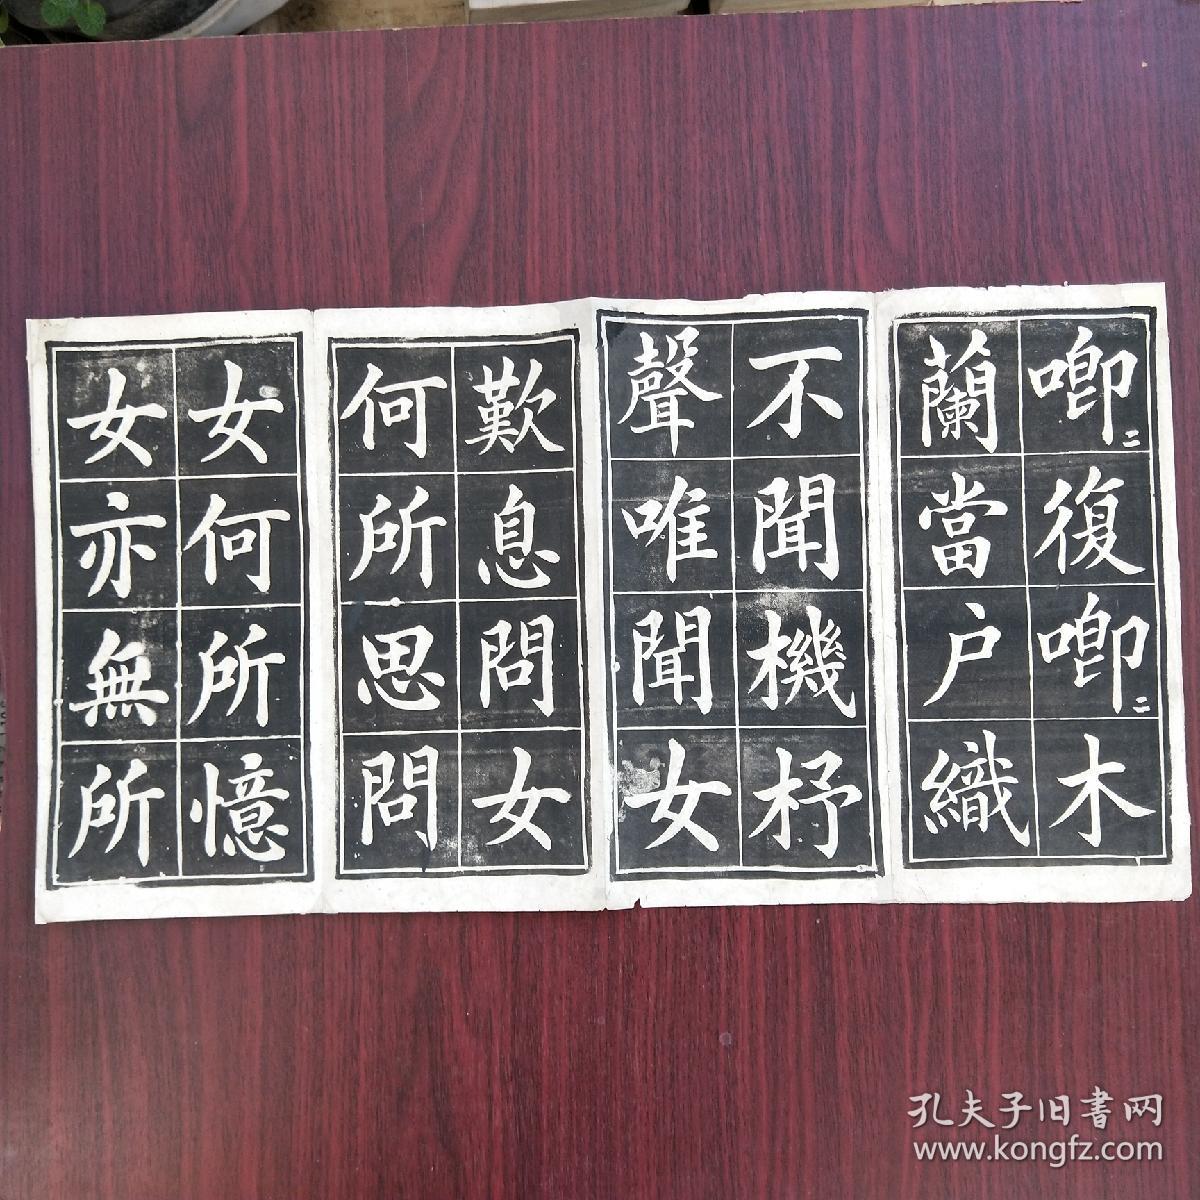 唧二復唧二木
蘭當户織
不聞機杼
聲唯聞女
歎息問女
何所思問
女何所憶
女亦無所
孔夫子旧書网
www.kongfz.com